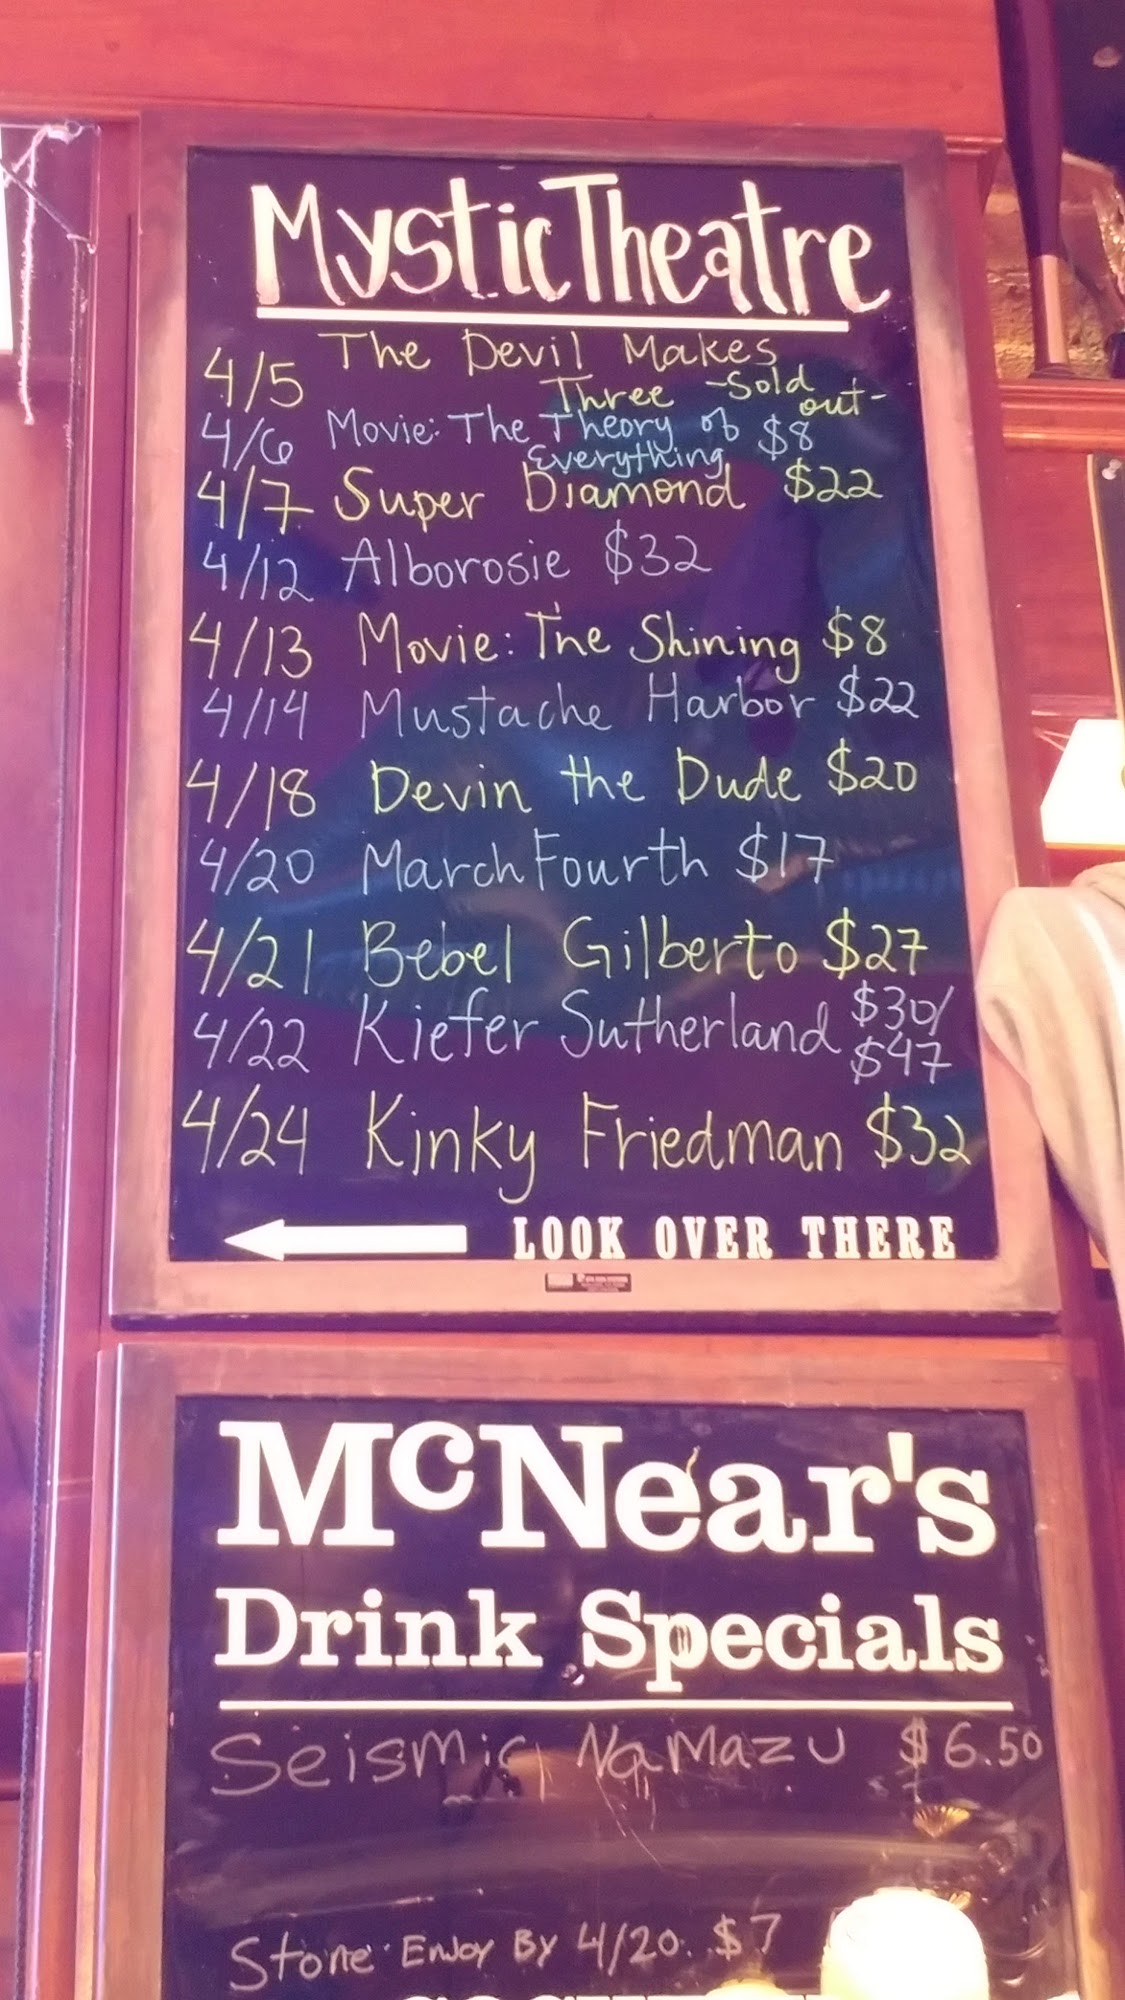 Mystic Theatre
4/5 The Devil Makes
Three -Sold out-
4/6 Movie: The Theory of $8
Everything
4/7 Super Diamond $22
4/12 Alborosie $32
4/13 Movie: The Shining $8
4/14 Mustache Harbor $22
4/18 Devin the Dude $20
4/20 MarchFourth $17
4/21 Bebel Gilberto $27
4/22 Kiefer Sutherland $30/
$47
4/24 Kinky Friedman $32
LOOK OVER THERE
McNear's
Drink Specials
Seismic, Namazu $6.50
Stone Enjoy By 4/20. $7